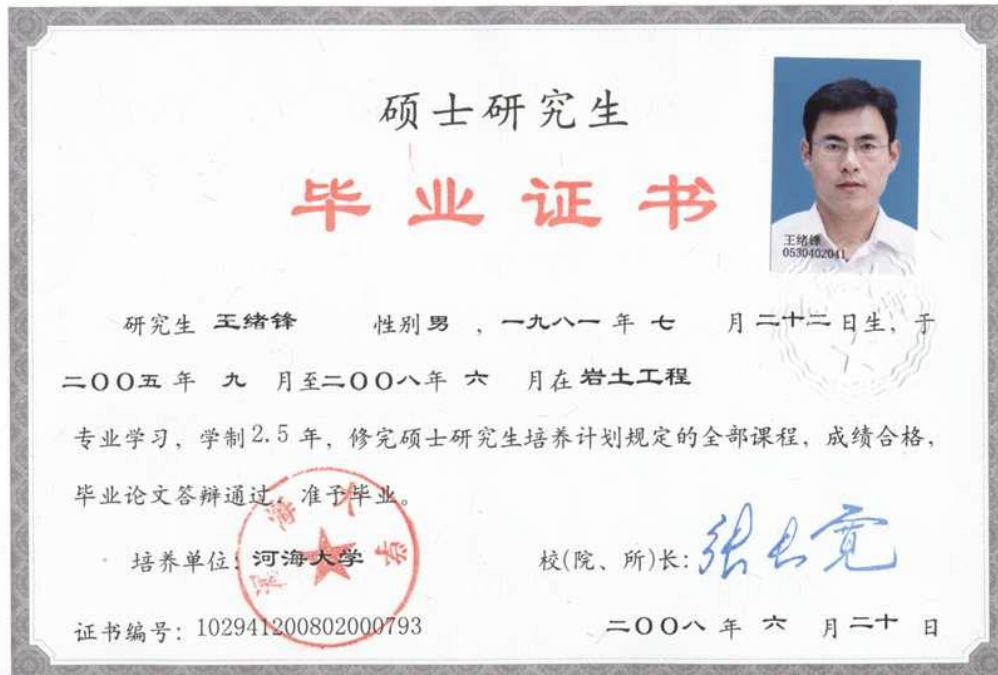 硕士研究生
毕业证书
王绪锋
0530402041
研究生 王绪锋 性别 男 ，一九八一 年 七 月 二十二 日生，于
二〇〇五 年 九 月至 二〇〇八 年 六 月在 岩土工程
专业学习，学制2.5 年，修完硕士研究生培养计划规定的全部课程，成绩合格，
毕业论文答辩通过，准予毕业。
河海大学
培养单位：河海大学
校(院、所)长：张长宽
证书编号：102941200802000793
二〇〇八 年 六 月 二十 日